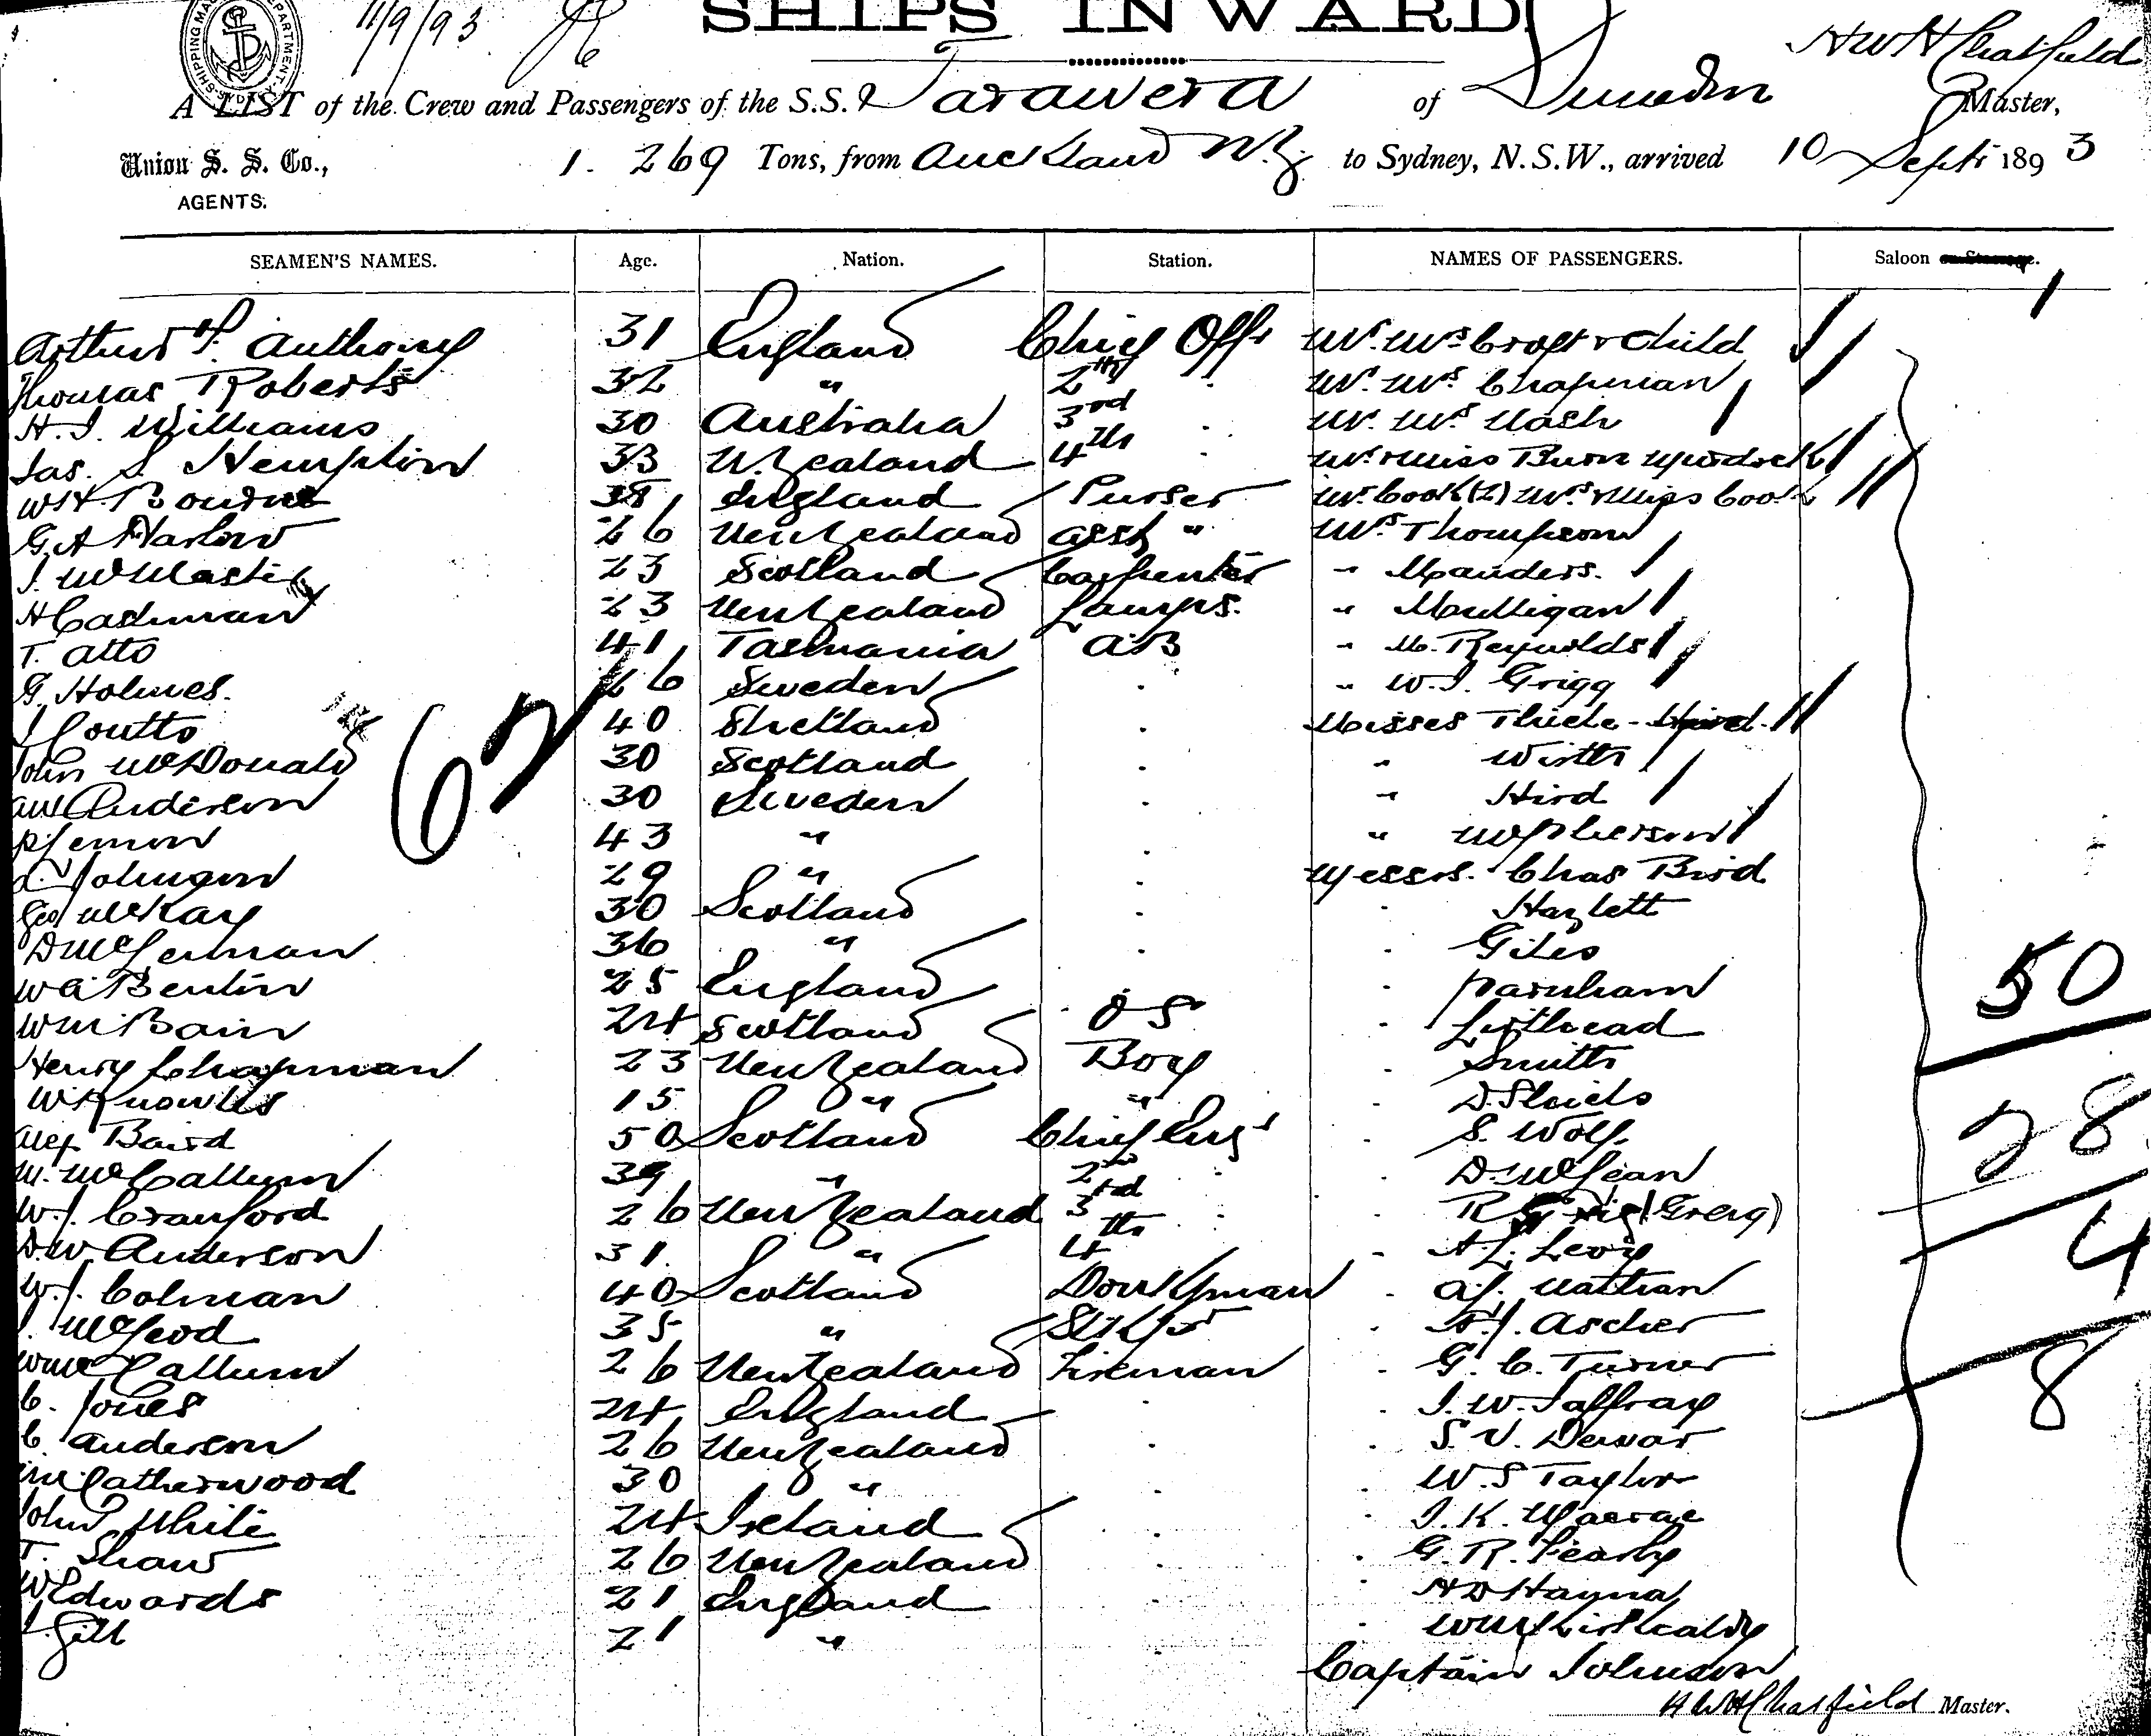 11/9/93
SHIPS INWARD
H W H Chatfield
A LIST of the Crew and Passengers of the S.S. Tarawera of Dunedin Master,
Union S. S. Co., 1. 269 Tons, from Auckland N.Z. to Sydney, N.S.W., arrived 10 Sept 1893
AGENTS.
SEAMEN'S NAMES. Age. Nation. Station. NAMES OF PASSENGERS. Saloon or Steerage.
Arthur P. Anthony 31 England Chief Offr Mr. Mrs Croft & Child
Thomas Roberts 32 " 2nd . Mr. Mrs Chapman
H. J. Williams 30 Australia 3rd . Mr. Mrs Nash
Jas. S Hempton 33 N. Zealand 4th . Mr & Miss Burn Murdock
W H Bourne 38 England Purser Mr. Cook (2) Mrs & Miss Cook
G. A Harlow 26 New Zealand asst " Mrs Thompson
J. 23 Scotland Carpenter " Manders.
H Cashman 23 New Zealand Lamps. " Mulligan
T. Atto 41 Tasmania AB " M. Reynolds
G. Holmes. 26 Sweden . " W. J. Grigg
J Coutts 40 Shetland . Misses Thiele
John McDonald 30 Scotland . " Wirth
Anderson 30 Sweden . " Hird
62
43 " . " McPherson
Johnson 29 " . Messrs. Chas Bird
Geo McKay 30 Scotland . . Hazlett
D McLennan 36 " . . Giles
W A Bentin 25 England . . Parnham
50
Wm Bain 24 Scotland O S . Lethead
Henry Chapman 23 New Zealand Boy . Smith
W Knowles 15 " " . D. Shields
28
Alex Baird 50 Scotland Chief Engr . S. Wolf.
M. McCallum 39 " 2nd . . D. McLean
W. J. Cranford 26 New Zealand 3rd . . R (Greig)
4
D. W Anderson 31. " 4th . A. L. Levy
W. J. Colman 40 Scotland Donkyman . A J. Nathan
J. McLeod 35 " Stkpr . H. J. Ascher
Wm Callum 26 New Zealand Fireman . G. C. Turner
8
C. Jones 24 England . . J. W. Jaffray
C. Anderson 26 New Zealand . . S. V. Dewar
Catherwood 30 " . . W. S Taylor
John White 24 Ireland . . J. K. Macrae
T. Shaw 26 New Zealand . . G. R. Fearby
W Edwards 21 England . . H D Hayna
J. Gill 21 " . Wm Kirkcaldy
Captain Johnson
H W H Chatfield Master.